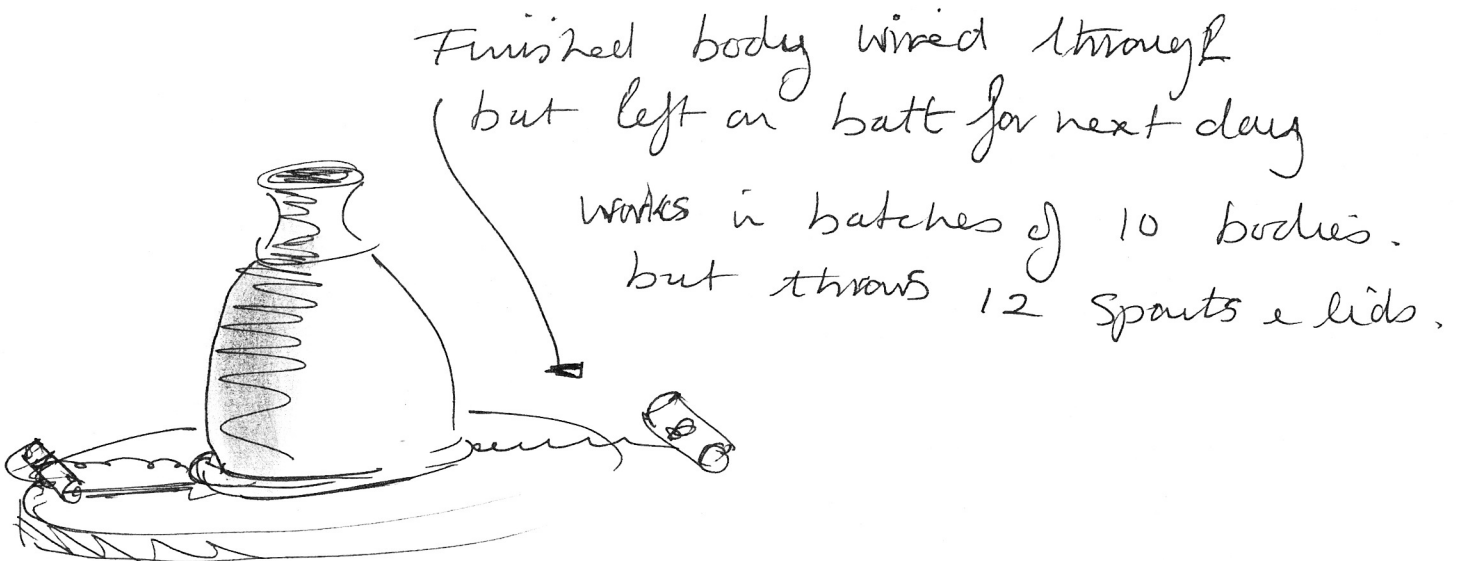 Finished body wired through
but left on batt for next day
works in batches of 10 bodies.
but throws 12 spouts e lids.